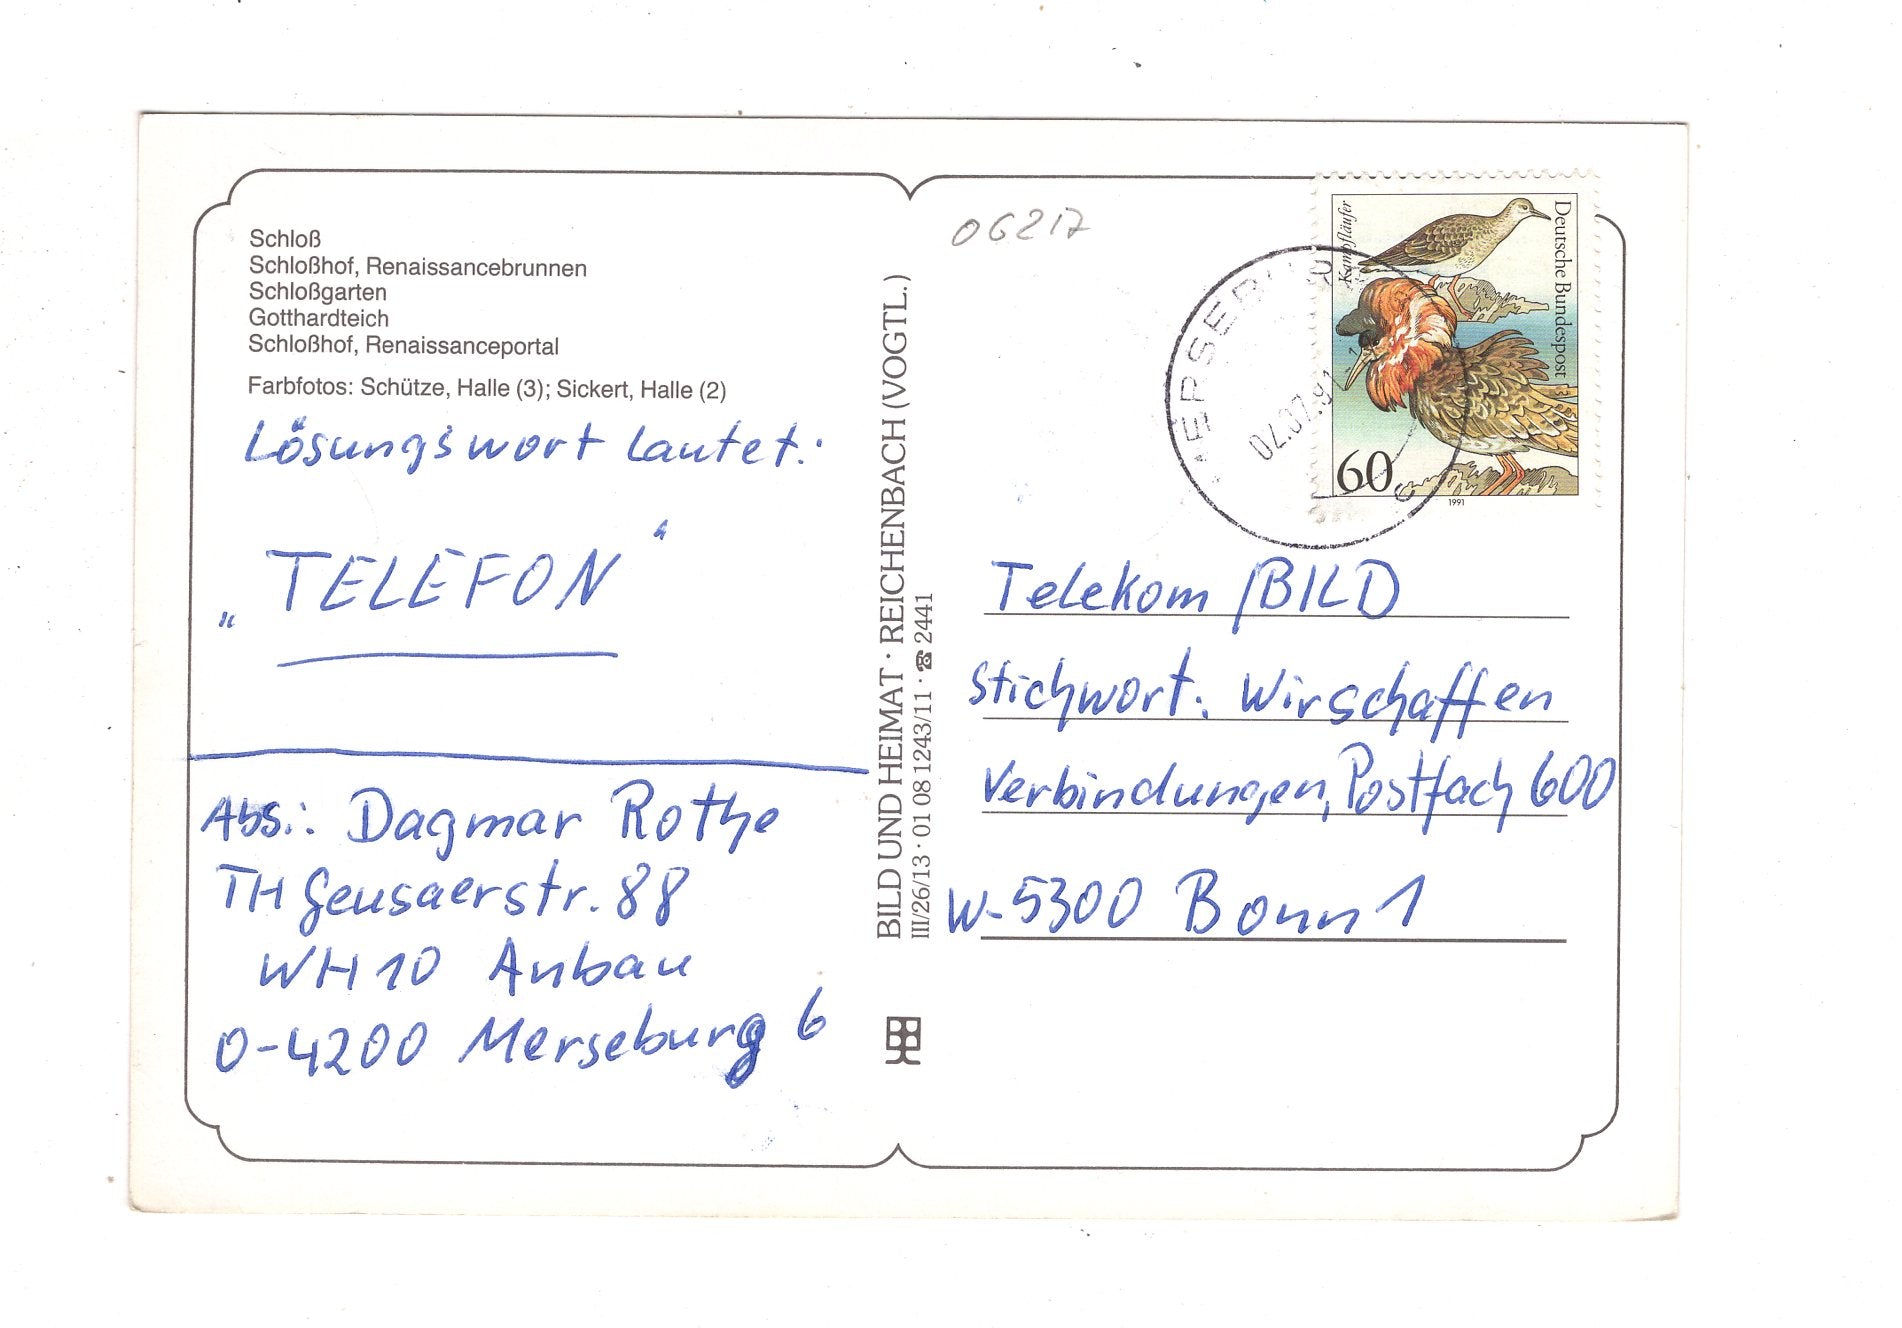 Schloß
Schloßhof, Renaissancebrunnen
Schloßgarten
Gotthardteich
Schloßhof, Renaissanceportal
Farbfotos: Schütze, Halle (3); Sickert, Halle (2)
Lösungswort lautet:
„TELEFON“
Abs.: Dagmar Rothe
TH Geusaerstr. 88
WH 10 Anbau
O-4200 Merseburg 6
BILD UND HEIMAT · REICHENBACH (VOGTL.)
III/26/13 · 01 08 1243/11 · ☎ 2441
06217
Deutsche Bundespost
Kampfläufer
60
1991
MERSEBURG
02.07.91
Telekom/BILD
Stichwort: Wirschaffen
Verbindungen, Postfach 600
W-5300 Bonn 1